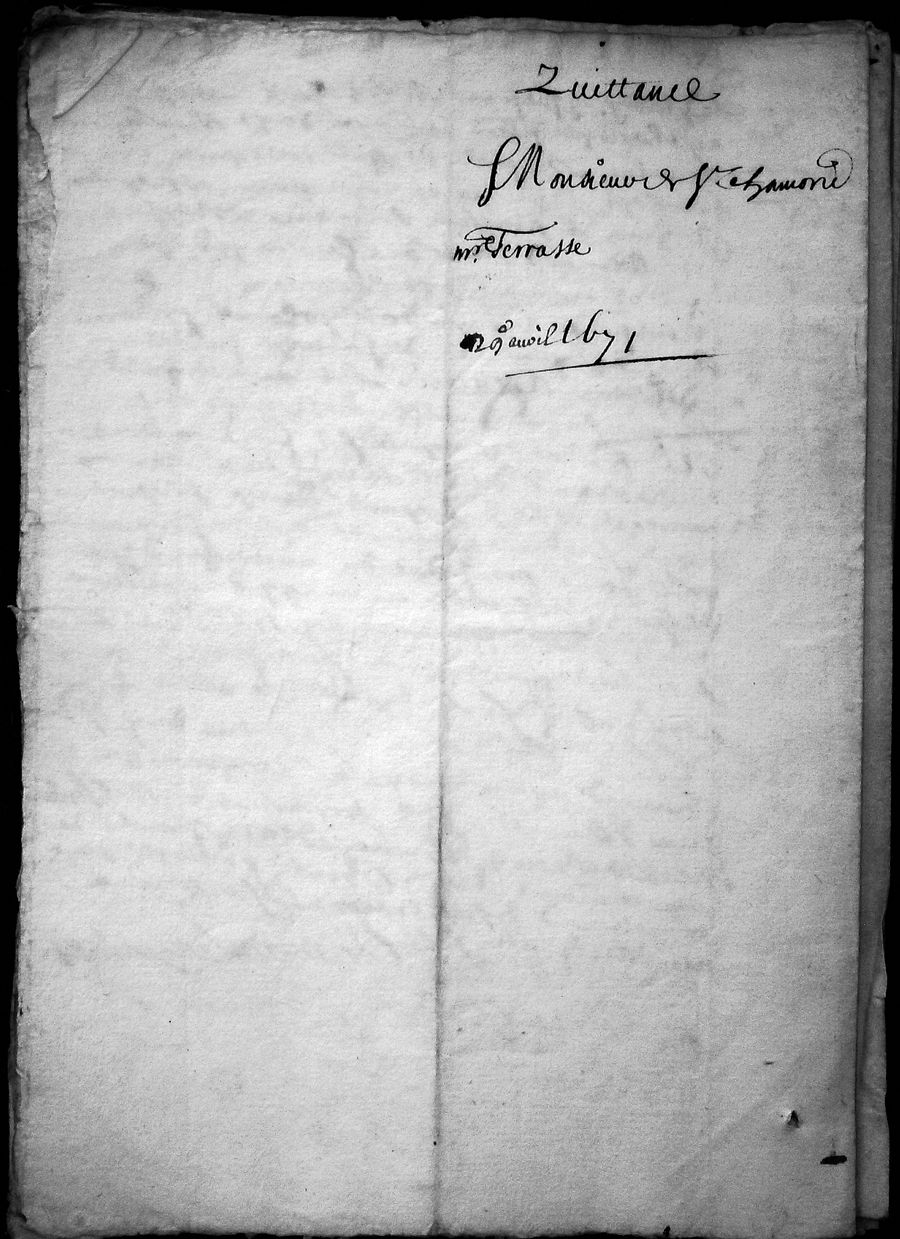 Quittance
P Monsieur de St chamond
mre Terrasse
29e avril 1671